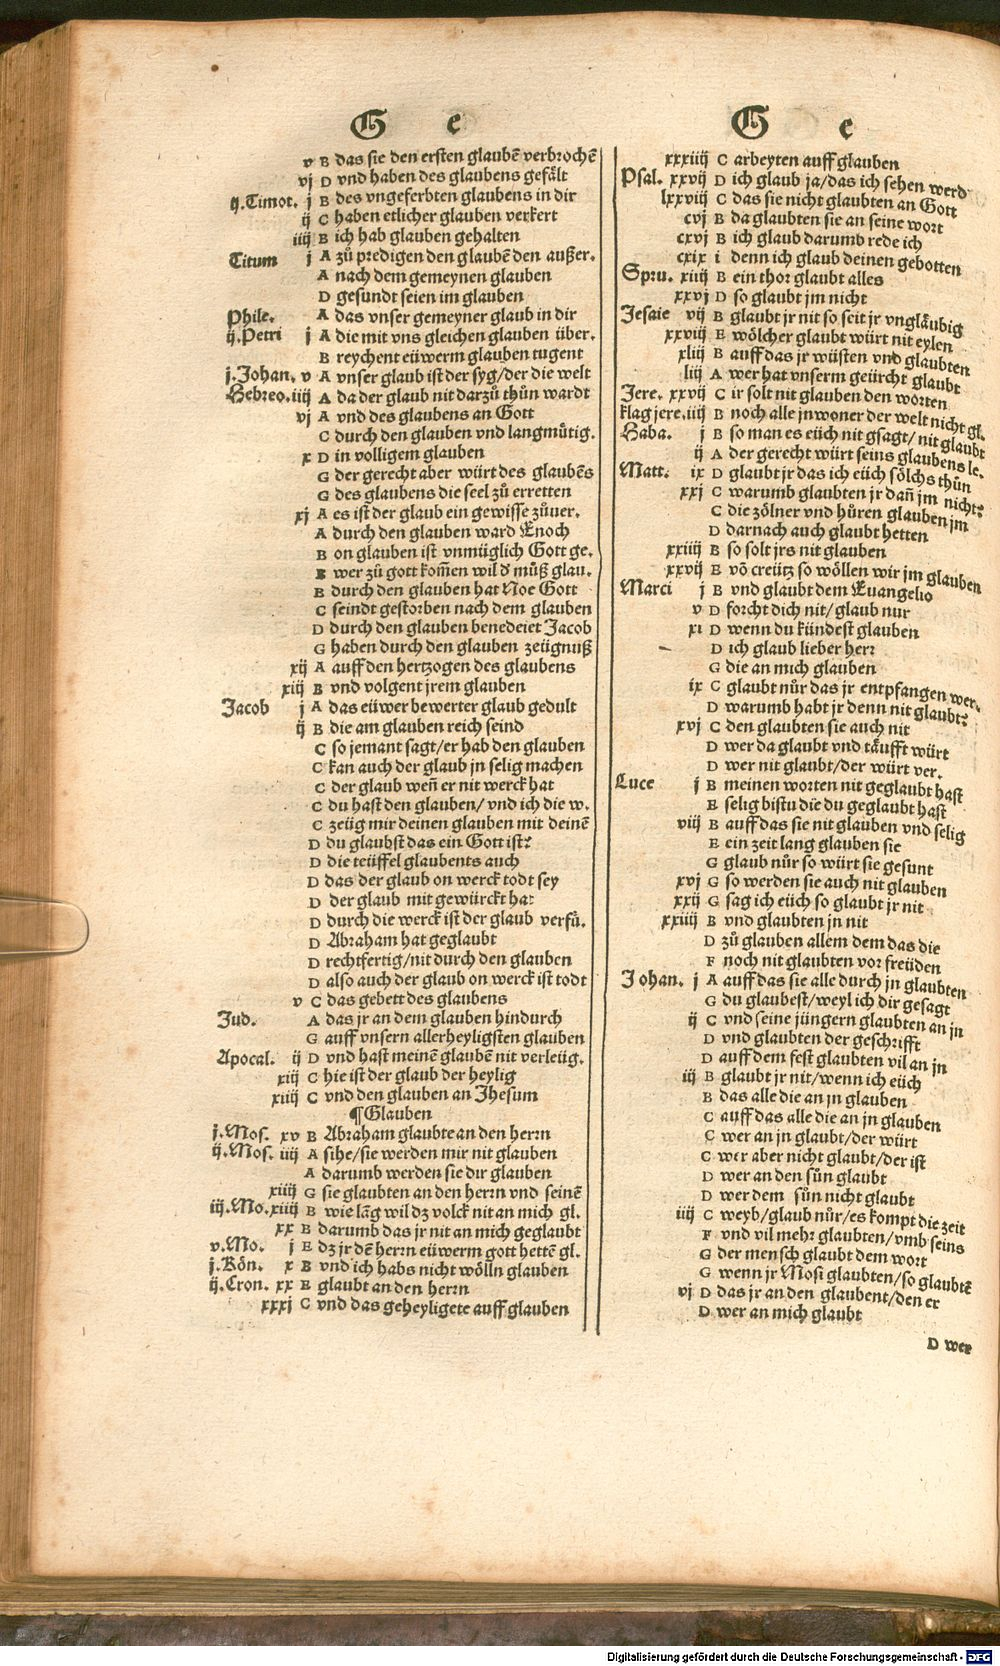 G e
v B das sie den ersten glaubē verbrochē
vj D vnd haben des glaubens gefält
ij.Timot. j B des vngeferbten glaubens in dir
ij C haben etlicher glauben verkert
iiij B ich hab glauben gehalten
Titum j A zů predigen den glaubē den außer.
A nach dem gemeynen glauben
D gesundt seien im glauben
Phile. A das vnser gemeyner glaub in dir
ij.Petri j A die mit vns gleichen glauben über.
B reychent eüwerm glauben tugent
j.Johan. v A vnser glaub ist der syg/der die welt
Hebreo.iiij A da der glaub nit darzů thůn wardt
vj A vnd des glaubens an Gott
C durch den glauben vnd langmůtig.
x D in volligem glauben
G der gerecht aber würt des glaubēs
G des glaubens die seel zů erretten
xj A es ist der glaub ein gewisse zůuer.
A durch den glauben ward Enoch
B on glauben ist vnmüglich Gott ge.
B wer zů gott kom̄en wil d můß glau.
B durch den glauben hat Noe Gott
C seindt gestorben nach dem glauben
D durch den glauben benedeiet Jacob
G haben durch den glauben zeügnuß
xij A auff den hertzogen des glaubens
xiij B vnd volgent jrem glauben
Jacob j A das eüwer bewerter glaub gedult
ij B die am glauben reich seind
C so jemant sagt/er hab den glauben
C kan auch der glaub jn selig machen
C der glaub weñ er nit werck hat
C du hast den glauben/ vnd ich die w.
C zeüg mir deinen glauben mit deinē
D du glaubst das ein Gott ist?
D die teüffel glaubents auch
D das der glaub on werck todt sey
D der glaub mit gewürckt hat
D durch die werck ist der glaub verfů.
D Abraham hat geglaubt
D rechtfertig/nit durch den glauben
D also auch der glaub on werck ist todt
v C das gebett des glaubens
Jud. A das jr an dem glauben hindurch
G auff vnsern allerheyligsten glauben
Apocal. ij D vnd hast meinē glaubē nit verleüg.
xiij C hie ist der glaub der heylig
xiiij C vnd den glauben an Jhesum
¶Glauben
j.Mos. xv B Abraham glaubte an den herrn
ij.Mos. iiij A sihe/sie werden mir nit glauben
A darumb werden sie dir glauben
xiiij G sie glaubten an den herrn vnd seinē
iiij.Mo.xiiij B wie lāg wil dz volck nit an mich gl.
xx B darumb das jr nit an mich geglaubt
v.Mo. j E dz jr dē herrn eüwerm gott hettē gl.
j.Kön. x B vnd ich habs nicht wölln glauben
ij.Cron. xx E glaubt an den herrn
xxxj C vnd das geheyligete auff glauben
G e
xxxiiij C arbeyten auff glauben
Psal. xxvij D ich glaub ja/das ich sehen werd
lxxviij C das sie nicht glaubten an Gott
cvj B da glaubten sie an seine wort
cxvj B ich glaub darumb rede ich
cxix i denn ich glaub deinen gebotten
Spru. xiiij B ein thor glaubt alles
xxvj D so glaubt jm nicht
Jesaie vij B glaubt jr nit so seit jr vngläubig
xxviij E wölcher glaubt würt nit eylen
xliij B auff das jr wüsten vnd glaubten
liij A wer hat vnserm geürcht glaubt
Jere. xxvij C ir solt nit glauben den worten
klag jere.iiij B noch alle jnwoner der welt nicht gl.
Haba. j B so man es eüch nit gsagt/ nit glaubt
ij A der gerecht würt seins glaubens le.
Matt. ix D glaubt jr das ich eüch sölchs thůn
xxj C warumb glaubten jr dañ jm nicht?
C die zölner vnd hůren glauben jm
D darnach auch glaubt hetten
xxiiij B so solt jrs nit glauben
xxvij E vō creütz so wöllen wir jm glauben
Marci j B vnd glaubt dem Euangelio
v D forcht dich nit/glaub nur
xi D wenn du kündest glauben
D ich glaub lieber herr
G die an mich glauben
ix C glaubt nůr das jr entpfangen wer.
D warumb habt jr denn nit glaubt?
xvj C den glaubten sie auch nit
D wer da glaubt vnd täufft würt
D wer nit glaubt/der würt ver.
Luce j B meinen worten nit geglaubt hast
E selig bistu die du geglaubt hast
viij B auff das sie nit glauben vnd selig
E ein zeit lang glauben sie
G glaub nůr so würt sie gesunt
xvj G so werden sie auch nit glauben
xxij G sag ich eüch so glaubt jr nit
xxiiij B vnd glaubten jn nit
D zů glauben allem dem das die
F noch nit glaubten vor freüden
Johan. j A auff das sie alle durch jn glaubten
G du glaubest/weyl ich dir gesagt
ij C vnd seine jüngern glaubten an jn
D vnd glaubten der geschrifft
D auff dem fest glaubten vil an jn
iij B glaubt jr nit/wenn ich eüch
B das alle die an jn glauben
C auff das alle die an jn glauben
C wer an jn glaubt/der würt
C wer aber nicht glaubt/der ist
D wer an den sůn glaubt
D wer dem sůn nicht glaubt
iiij C weyb/glaub nůr/es kompt die zeit
F vnd vil mehr glaubten/vmb seins
G der mensch glaubt dem wort
G wenn jr Mosi glaubten/so glaubtē
vj D das jr an den glaubent/den er
D wer an mich glaubt
D wer
Digitalisierung gefördert durch die Deutsche Forschungsgemeinschaft - DFG